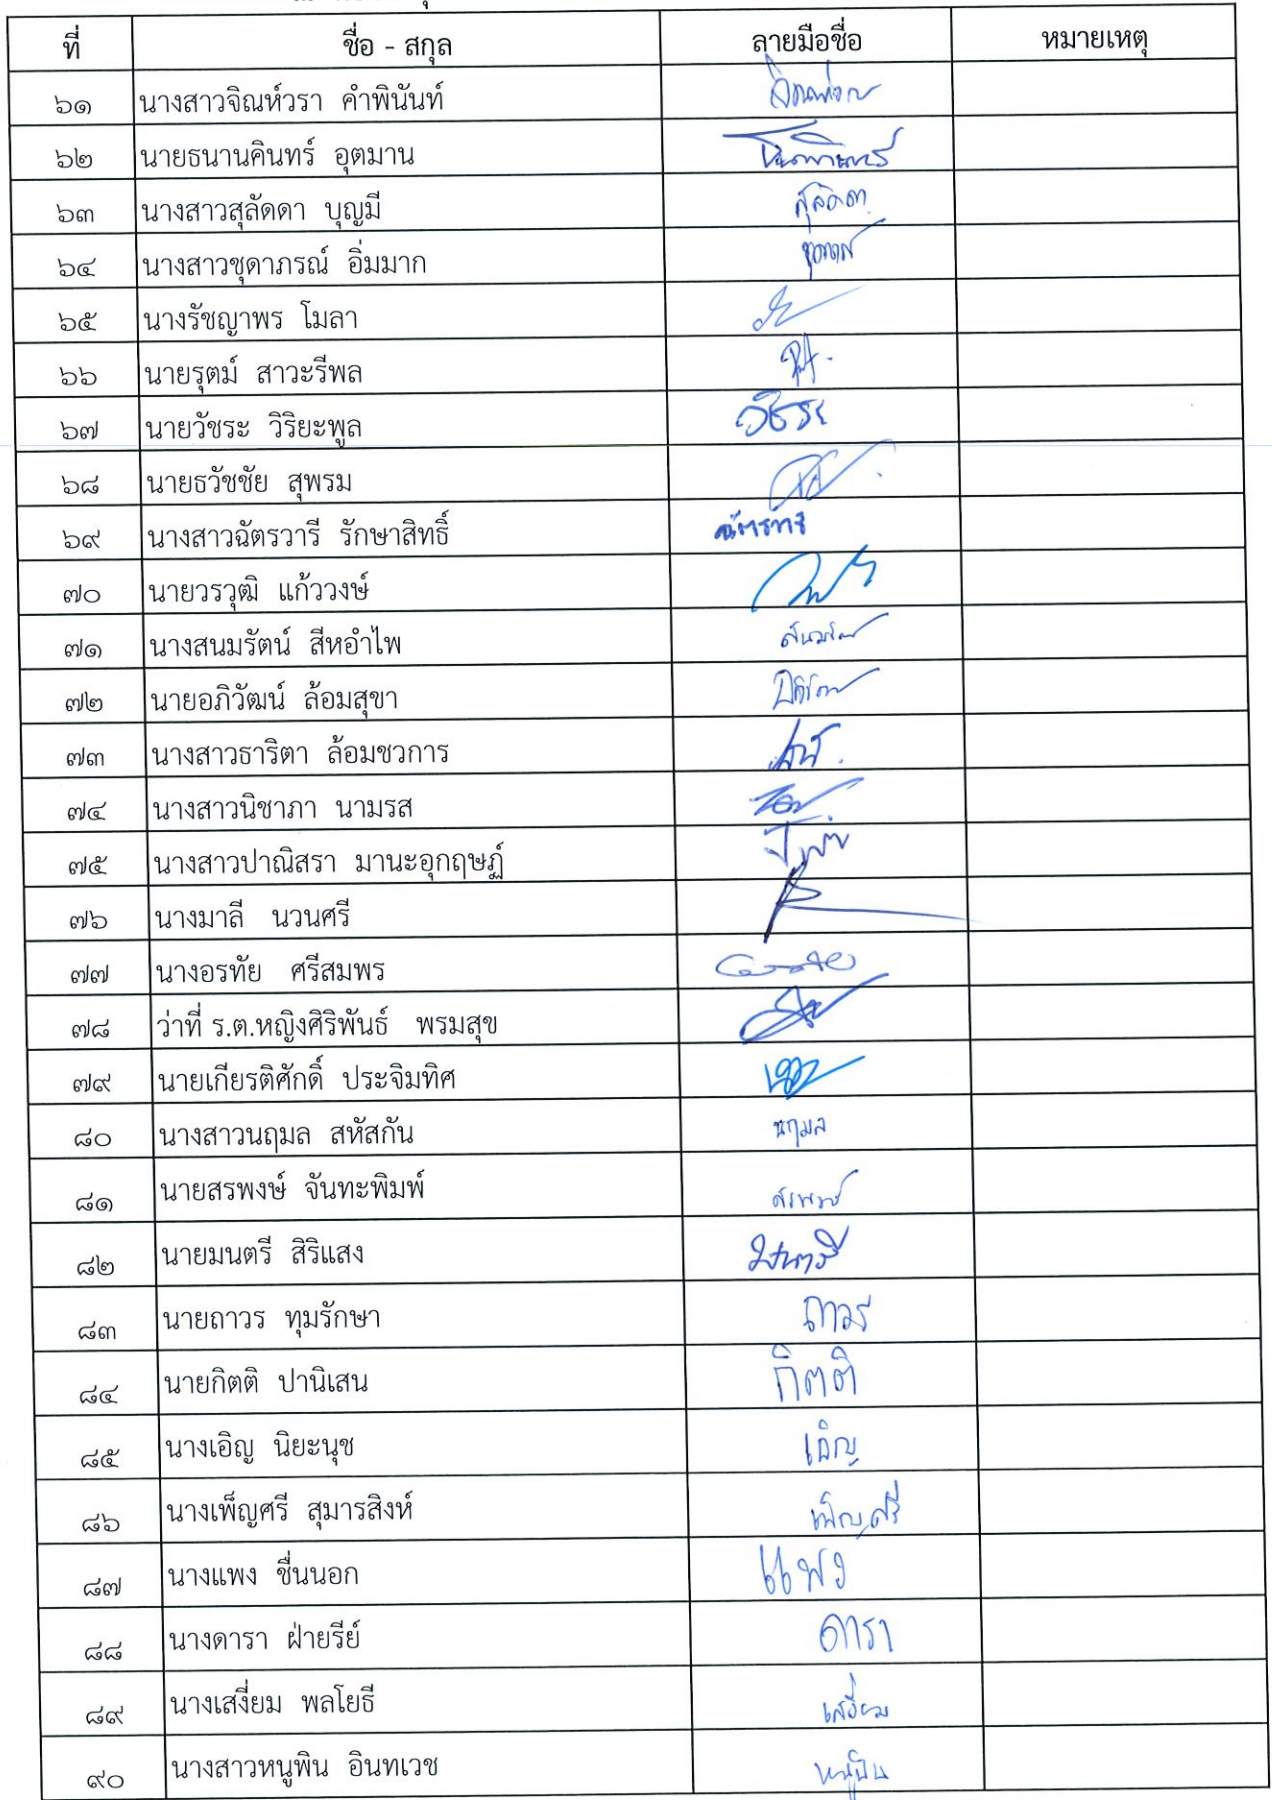 ที่ ชื่อ - สกุล ลายมือชื่อ หมายเหตุ
๖๑ นางสาวจิณห์วรา คำพินันท์
๖๒ นายธนานคินทร์ อุตมาน
๖๓ นางสาวสุลัดดา บุญมี สุลัดดา
๖๔ นางสาวชุดาภรณ์ อิ่มมาก
๖๕ นางรัชญาพร โมลา
๖๖ นายรุตม์ สาวะรีพล
๖๗ นายวัชระ วิริยะพูล วัชระ
๖๘ นายธวัชชัย สุพรม
๖๙ นางสาวฉัตรวารี รักษาสิทธิ์ ฉัตรวารี
๗๐ นายวรวุฒิ แก้ววงษ์
๗๑ นางสนมรัตน์ สีหอำไพ
๗๒ นายอภิวัฒน์ ล้อมสุขา
๗๓ นางสาวธาริตา ล้อมชวการ
๗๔ นางสาวนิชาภา นามรส
๗๕ นางสาวปาณิสรา มานะอุกฤษฏ์
๗๖ นางมาลี นวนศรี
๗๗ นางอรทัย ศรีสมพร
๗๘ ว่าที่ ร.ต.หญิงศิริพันธ์ พรมสุข
๗๙ นายเกียรติศักดิ์ ประจิมทิศ
๘๐ นางสาวนฤมล สหัสกัน นฤมล
๘๑ นายสรพงษ์ จันทะพิมพ์ สรพงษ์
๘๒ นายมนตรี สิริแสง มนตรี
๘๓ นายถาวร ทุมรักษา ถาวร
๘๔ นายกิตติ ปานิเสน กิตติ
๘๕ นางเอิญ นิยะนุช เอิญ
๘๖ นางเพ็ญศรี สุมารสิงห์ เพ็ญศรี
๘๗ นางแพง ชื่นนอก แพง
๘๘ นางดารา ฝ่ายรีย์ ดารา
๘๙ นางเสงี่ยม พลโยธี เสงี่ยม
๙๐ นางสาวหนูพิน อินทเวช หนูพิน